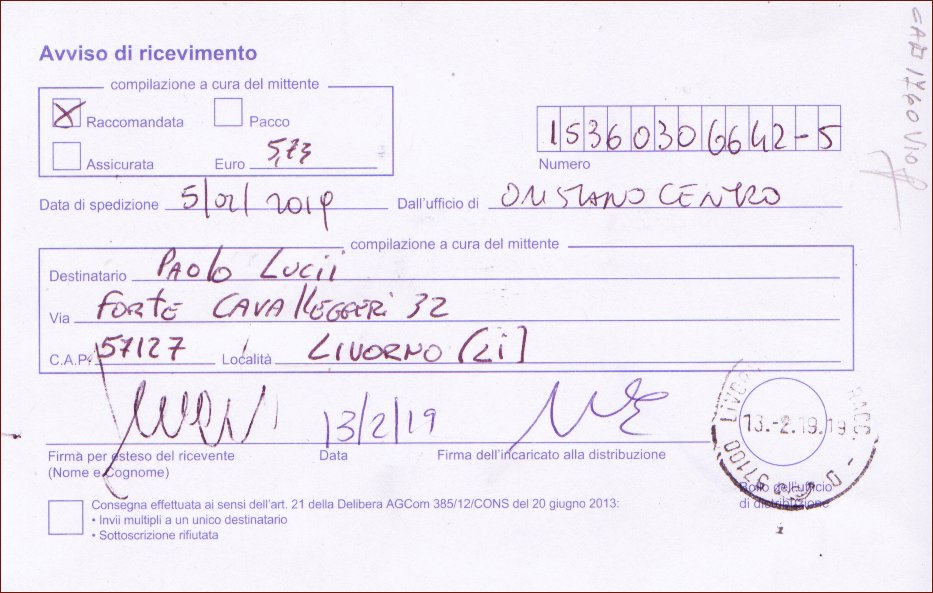 Avviso di ricevimento
compilazione a cura del mittente
Raccomandata Pacco
Assicurata Euro 5,73
15360306642-5
Numero
Data di spedizione 5/02/2019 Dall'ufficio di ORISTANO CENTRO
compilazione a cura del mittente
Destinatario PAOLO LUCII
Via FORTE CAVALLEGGERI 32
C.A.P. 57127 Località LIVORNO (LI)
13/2/19
Firma per esteso del ricevente Data Firma dell'incaricato alla distribuzione
(Nome e Cognome)
13.-2.19.19
57100 LIVOR
Bollo dell'ufficio
di distribuzione
Consegna effettuata ai sensi dell'art. 21 della Delibera AGCom 385/12/CONS del 20 giugno 2013:
• Invii multipli a un unico destinatario
• Sottoscrizione rifiutata